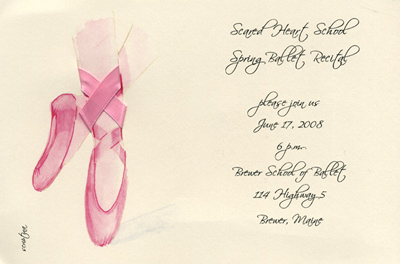 Scared Heart School
Spring Ballet Recital
please join us
June 17, 2008
6 p.m.
Brewer School of Ballet
114 Highway 5
Brewer, Maine